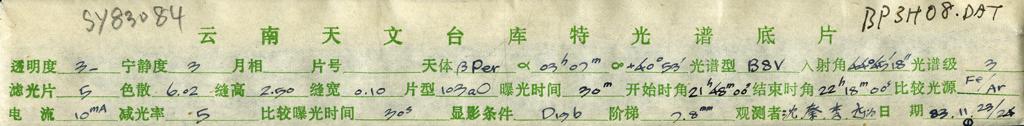 SY83084 BP3H08.DAT
云南天文台库特光谱底片
透明度 3- 宁静度 3 月相 片号 天体 βPer α 03h 07m δ +40°53' 光谱型 B8V 入射角 18" 光谱级 3
滤光片 5 色散 6.02 缝高 2.50 缝宽 0.10 片型 103aO 曝光时间 30m 开始时角 21h 48m 00s 结束时角 22h 18m 00s 比较光源 Fe/Ar
电流 10mA 减光率 5 比较曝光时间 30s 显影条件 D19b 阶梯 7.8mm 观测者 沈 日期 83.11.23/24